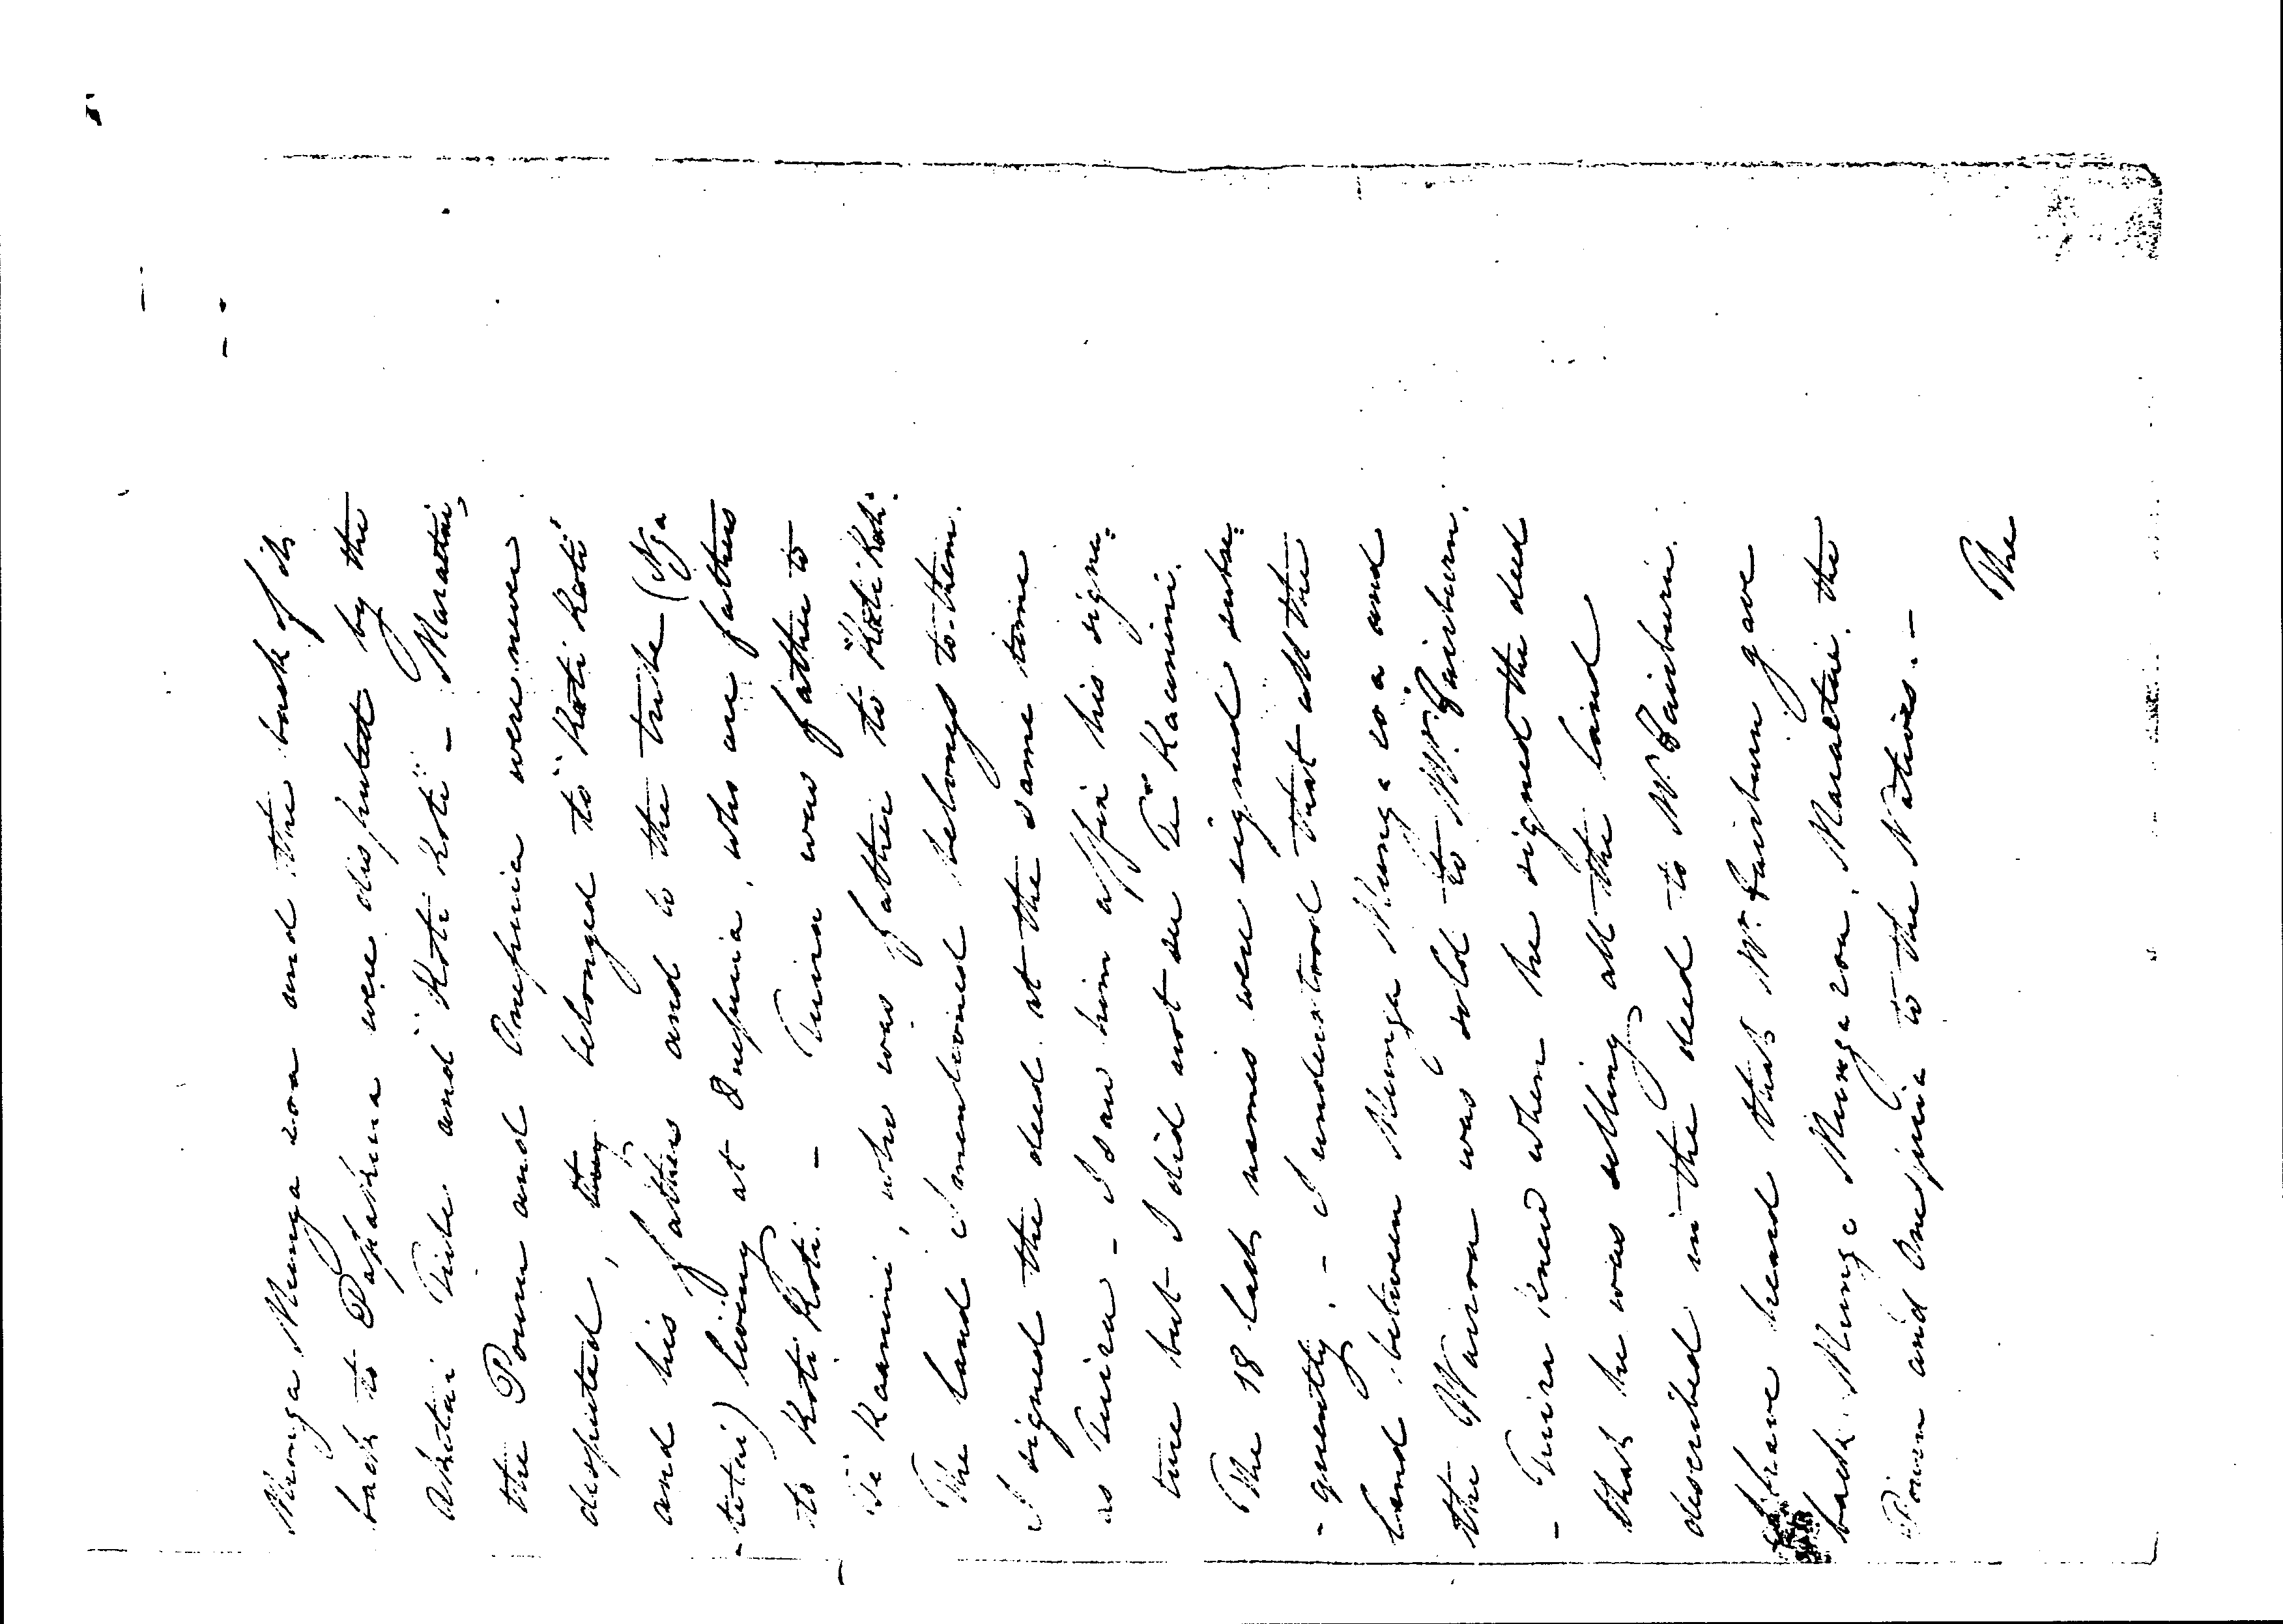 Munga Munga roa and the back of it
back to Papahua were disputed by the
Akitai Tribe and "Koti Koti" - Maraetai,
the Pouru and Onepuia were never
disputed, they belonged to "Koti Koti"
and his fathers and to the tribe (Nga
-titai) living at Onepuia, who are fathers
to Koti Koti. - Tuira was father to
Te Kaanini, who was father to "Koti Koti".
The land I mentioned belongs to them.
I signed the deed at the same time
as Tuira - I saw him affix his signa:
ture but I did not see Te Kaunini.
The 18 last names were signed subse:
- quently. - I understood that all the
land between Munga Munga roa and
the Wairoa was sold to Mr. Fairburn.
- Tuira knew when he signed the deed
that he was selling all the land
described in the deed to Mr. Fairburn.
I have heard that Mr. Fairburn gave
back Munga Munga roa, Maraetai, the
Pouru and Onepuia to the Natives. -
The